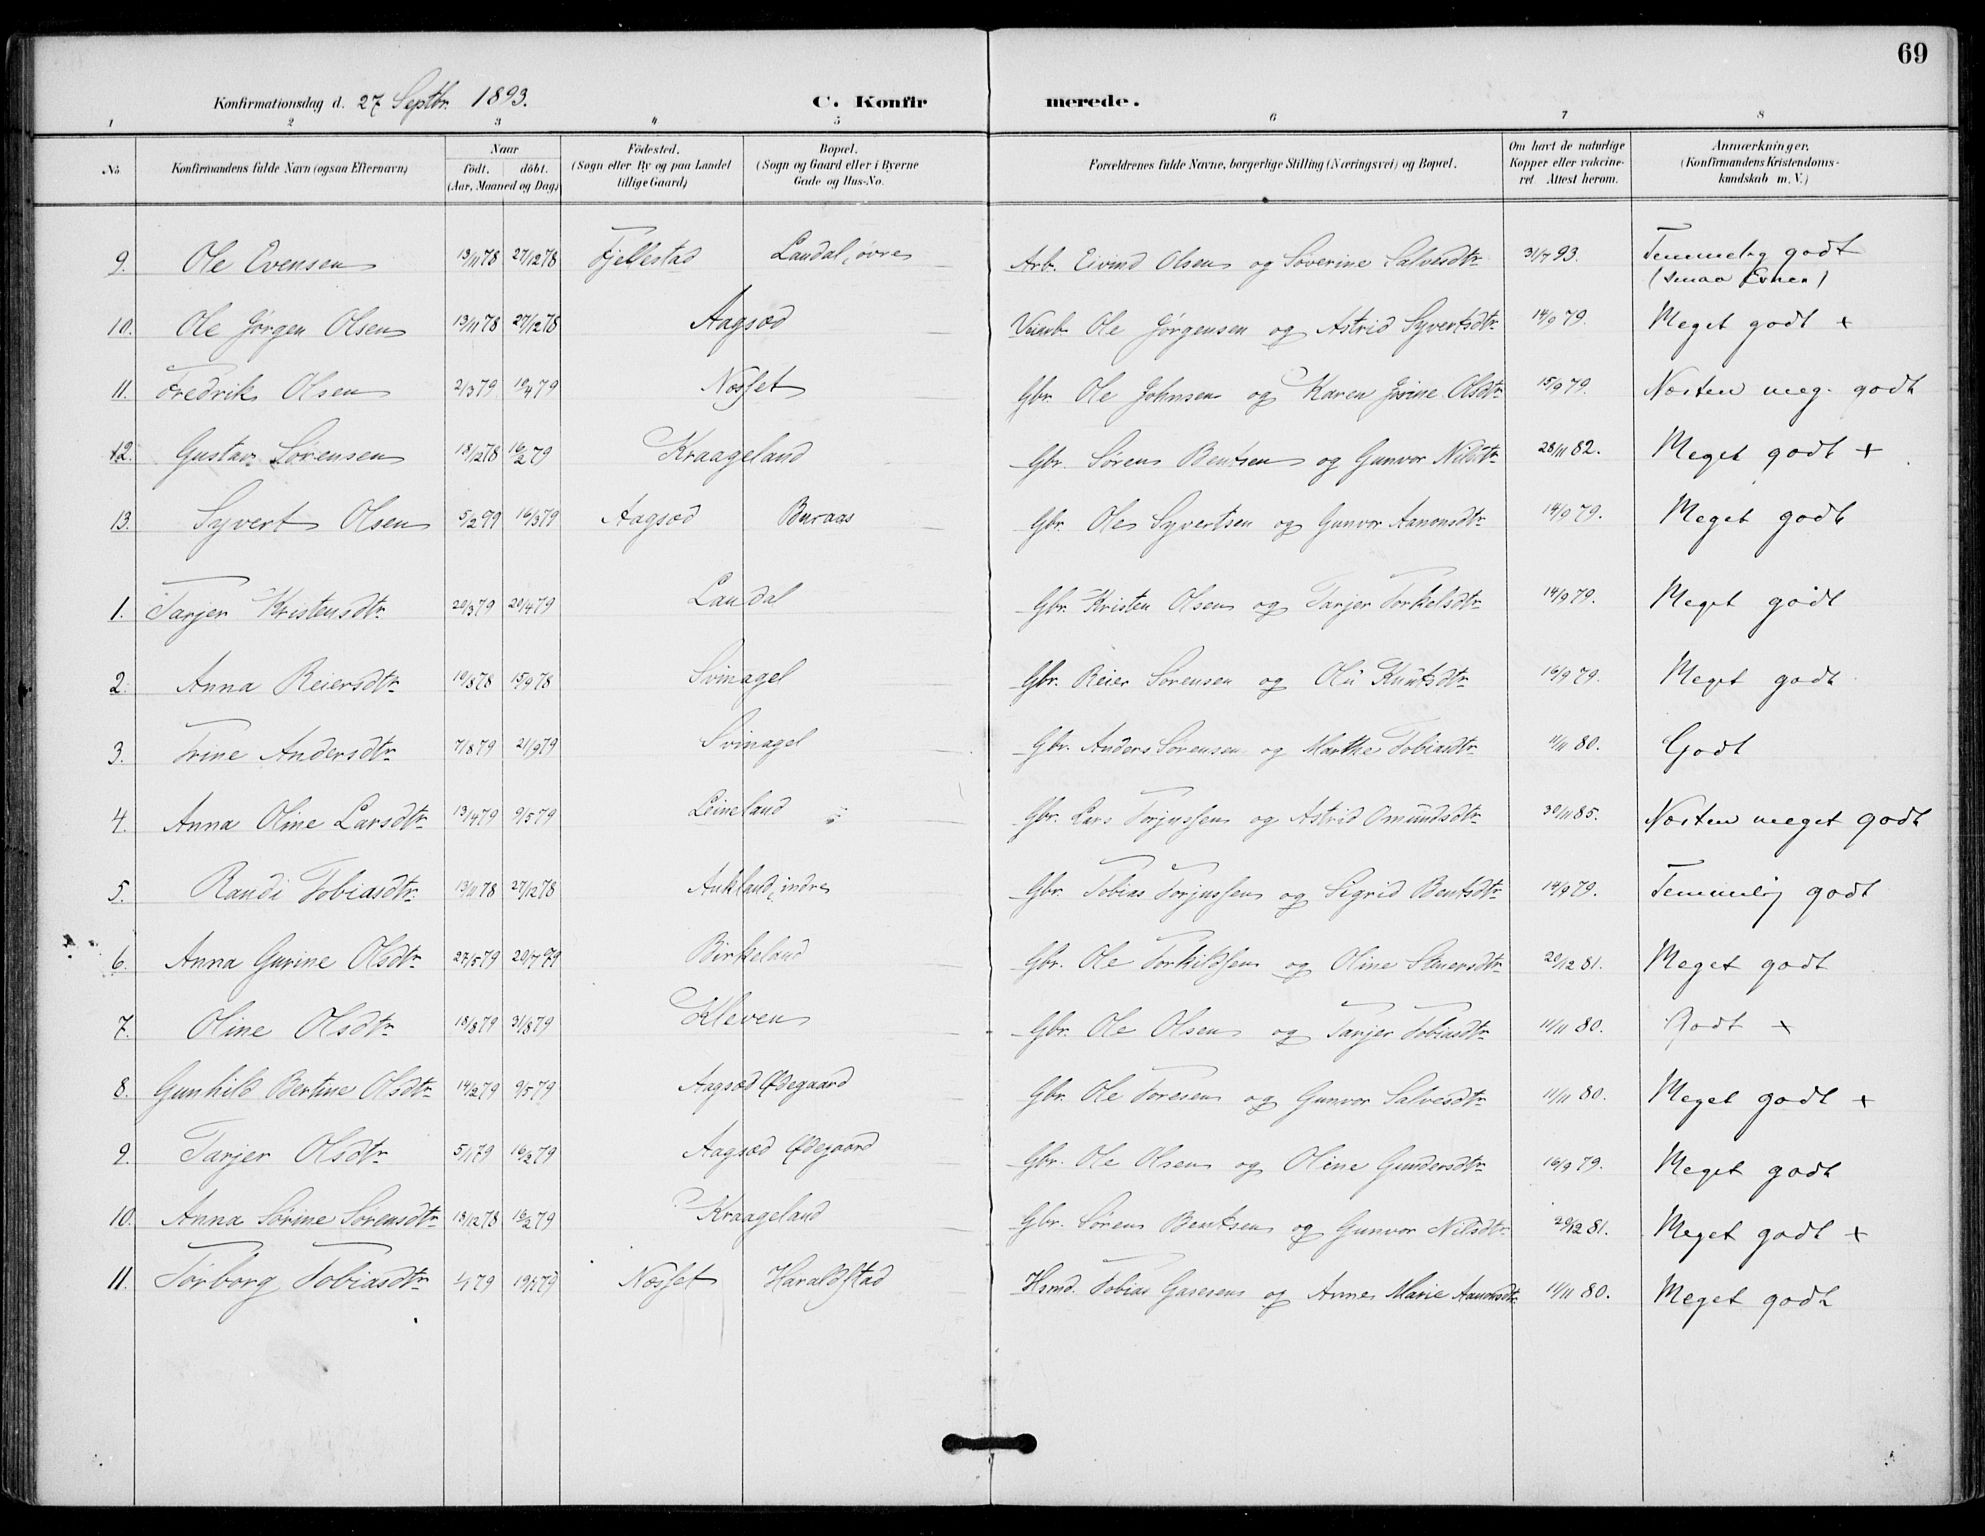 69
Konfirmationsdag d. 27 Septbr. 1893.
C. Konfirmerede.
1 2 3 4 5 6 7 8
No. Konfirmandens fulde Navn (ogsaa Efternavn) Naar födt. döbt. (Aar, Maaned og Dag) Födested. (Sogn eller By og paa Landet tillige Gaard) Bopæl. (Sogn og Gaard eller i Byerne Gade og Hus-No. Forældrenes fulde Navne, borgerlige Stilling (Næringsvei) og Bopæl. Om havt de naturlige Kopper eller vakcineret Attest herom. Anmærkninger. (Konfirmandens Kristendomskundskab m. V.)
9. Ole Evensen 13/11 78 27/12 78 Fjellestad Landal, øvre Arb. Eivind Olsen og Søverine Salvesdtr 31/7 93. Temmelig godt
(smaa Evner)
10. Ole Jørgen Olsen 13/11 78 27/12 78 Aagsæd Ole Jørgensen og Astrid Syvertsdtr 14/9 79. Meget godt +
11. Fredrik Olsen 2/3 79 10/4 79 Næsset Gbr. Ole Johnsen og Karen Olsdtr 15/9 79. Næsten meg. godt
12. Gustav Sørensen 18/12 78 16/2 79 Kraageland Gbr. Søren Bentsen og Gunvor Nilsdtr 28/11 82. Meget godt +
13. Syvert Olsen 5/2 79 16/3 79 Aagsæd Buraas Gbr. Ole Syvertsen og Gunvor Aanonsdtr 14/9 79. Meget godt
1. Tarjer Kristensdtr 20/3 79 20/4 79 Landal Gbr. Kristen Olsen og Tarjer Torkelsdtr 14/9 79. Meget godt
2. Anna Reiersdtr 10/8 78 15/9 78 Svinagel Gbr. Reier Sørensen og Olu Knutsdtr 16/9 79. Meget godt
3. Trine Andersdtr 7/8 79 21/9 79 Svinagel Gbr. Anders Sørensen og Marthe Tobiasdtr 11/11 80. Godt
4. Anna Oline Larsdtr 13/4 79 9/5 79 Leineland Gbr. Lars Torjussen og Astrid Omundsdtr 30/11 85. Næsten meget godt
5. Randi Tobiasdtr 13/11 78 27/12 78 Aukland, indre Gbr. Tobias Torjussen og Sigrid Bentsdtr 14/9 79. Temmelig godt
6. Anna Gurine Olsdtr 27/5 79 20/7 79 Birkeland Gbr. Ole Torkildsen og Oline 20/12 81. Meget godt
7. Oline Olsdtr 18/8 79 31/8 79 Kleven Gbr. Ole Olsen og Tarjer Tobiasdtr 11/11 80. Godt +
8. Gunhild Bertine Olsdtr 14/2 79 9/5 79 Aagsæd Ødegaard Gbr. Ole Toresen og Gunvor Salvesdtr 11/11 80. Meget godt +
9. Tarjer Olsdtr 5/1 79 16/2 79 Aagsæd Ødegaard Gbr. Ole Olsen og Oline Gundersdtr 16/9 79. Meget godt
10. Anna Sørine Sørensdtr 18/12 78 16/2 79 Kraageland Gbr. Søren Bentsen og Gunvor Nilsdtr 20/12 81. Meget godt +
11. Torborg Tobiasdtr 79 79 Næsset Haraldstad Hsmd. Tobias og Anne Marie Aanonsdtr 11/11 80. Meget godt